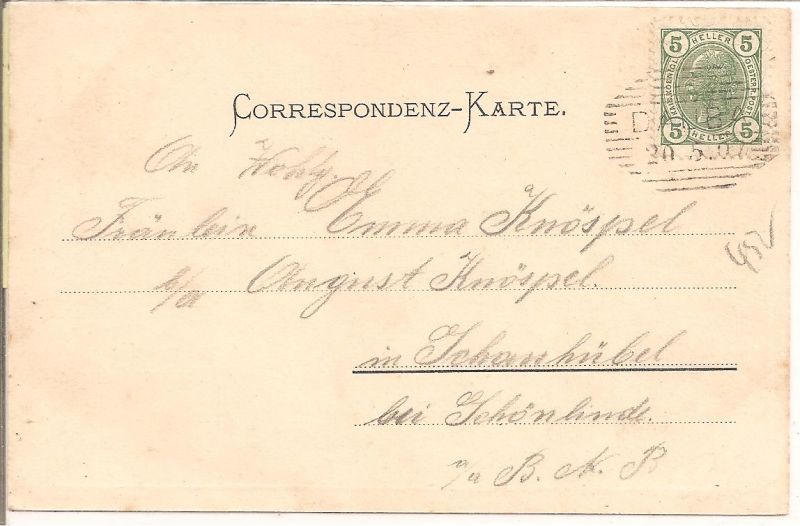 5 HELLER 5
KAIS.KOENIGL. OESTERR.POST
5 HELLER 5
CORRESPONDENZ-KARTE.
20 5 07
An Wohlg.
Fräulein Emma Knöspel
b/a August Knöspel.
in Schönhübel
bei Schönlinde.
a/a B. N. B
452